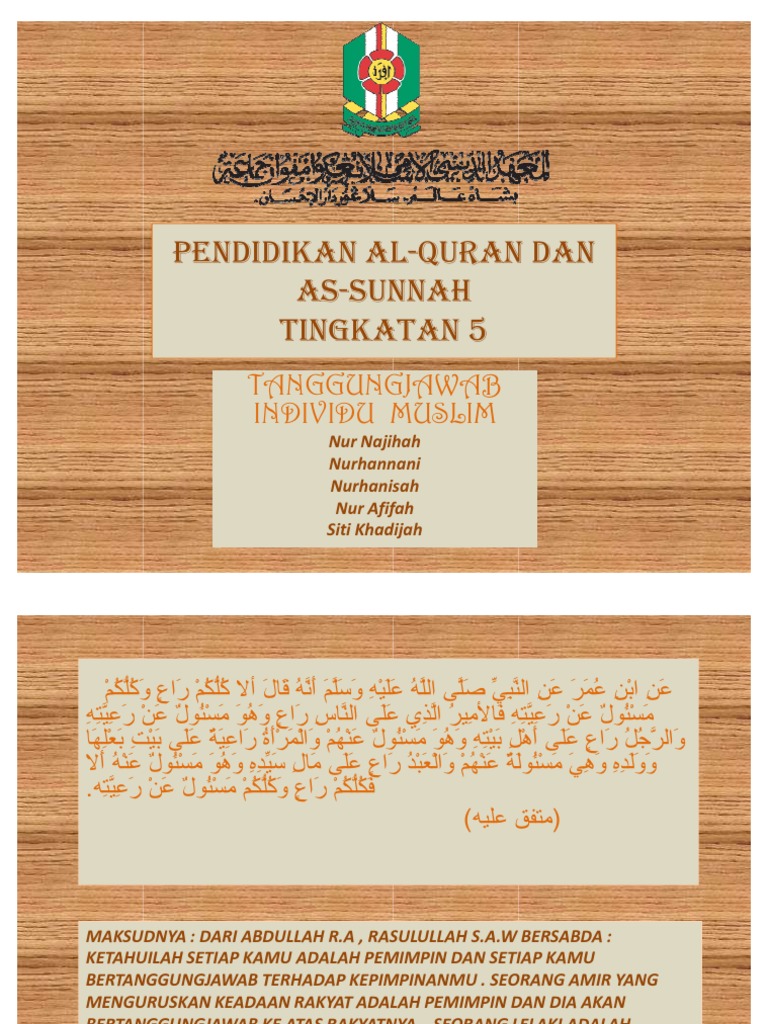 اقرأ
PENDIDIKAN AL-QURAN DAN
AS-SUNNAH
TINGKATAN 5
TANGGUNGJAWAB
INDIVIDU MUSLIM
Nur Najihah
Nurhannani
Nurhanisah
Nur Afifah
Siti Khadijah
عَنِ ابْنِ عُمَرَ عَنِ النَّبِيِّ صَلَّى اللَّهُ عَلَيْهِ وَسَلَّمَ أَنَّهُ قَالَ أَلا كُلُّكُمْ رَاعٍ وَكُلُّكُمْ
مَسْئُولٌ عَنْ رَعِيَّتِهِ فَالأمِيرُ الَّذِي عَلَى النَّاسِ رَاعٍ وَهُوَ مَسْئُولٌ عَنْ رَعِيَّتِهِ
وَالرَّجُلُ رَاعٍ عَلَى أَهْلِ بَيْتِهِ وَهُوَ مَسْئُولٌ عَنْهُمْ وَالْمَرْأَةُ رَاعِيَةٌ عَلَى بَيْتِ بَعْلِهَا
وَوَلَدِهِ وَهِيَ مَسْئُولَةٌ عَنْهُمْ وَالْعَبْدُ رَاعٍ عَلَى مَالِ سَيِّدِهِ وَهُوَ مَسْئُولٌ عَنْهُ أَلا
فَكُلُّكُمْ رَاعٍ وَكُلُّكُمْ مَسْئُولٌ عَنْ رَعِيَّتِهِ.
(متفق عليه)
MAKSUDNYA : DARI ABDULLAH R.A , RASULULLAH S.A.W BERSABDA :
KETAHUILAH SETIAP KAMU ADALAH PEMIMPIN DAN SETIAP KAMU
BERTANGGUNGJAWAB TERHADAP KEPIMPINANMU . SEORANG AMIR YANG
MENGURUSKAN KEADAAN RAKYAT ADALAH PEMIMPIN DAN DIA AKAN
BERTANGGUNGJAWAB KE ATAS RAKYATNYA . SEORANG LELAKI ADALAH